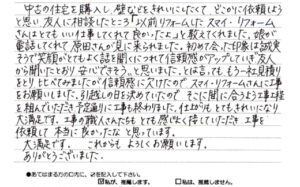 中古の住宅を購入し、壁などをきれいにしたくて、どこかに依頼しよう
と思い友人に相談したところ「以前リフォームしたスマイ・リフォーム
さんはとてもいい仕事してくれて良かったよ」と教えてくれました。娘が
電話してくれて原田さんが見に来られました。初めて会った印象は誠実
そうで笑顔がとてもよく話を聞くにつれて信頼感がアップしていき友人
から聞いたとおり安心できそう。と思いました。とは言ってももう一社見積り
をとり比べてみましたが信頼感に欠けたのでスマイ・リフォームさんに工事
をお願いしました。引越しの日を決めていたので、そこに間に合うよう工事工程
を組んでいただき予定通りに工事も終わりました。仕上がりもとてもきれいになり
大満足です。工事の職人さんたちもとても感じよく接していただき工事を
依頼して本当に良かったなと思っています。
大満足です。これからもよろしくお願いします。
ありがとうございました。
あてはまるり の口内に、☑を記入して下さい。
☑私が、推薦します。 □私は、推薦しません。